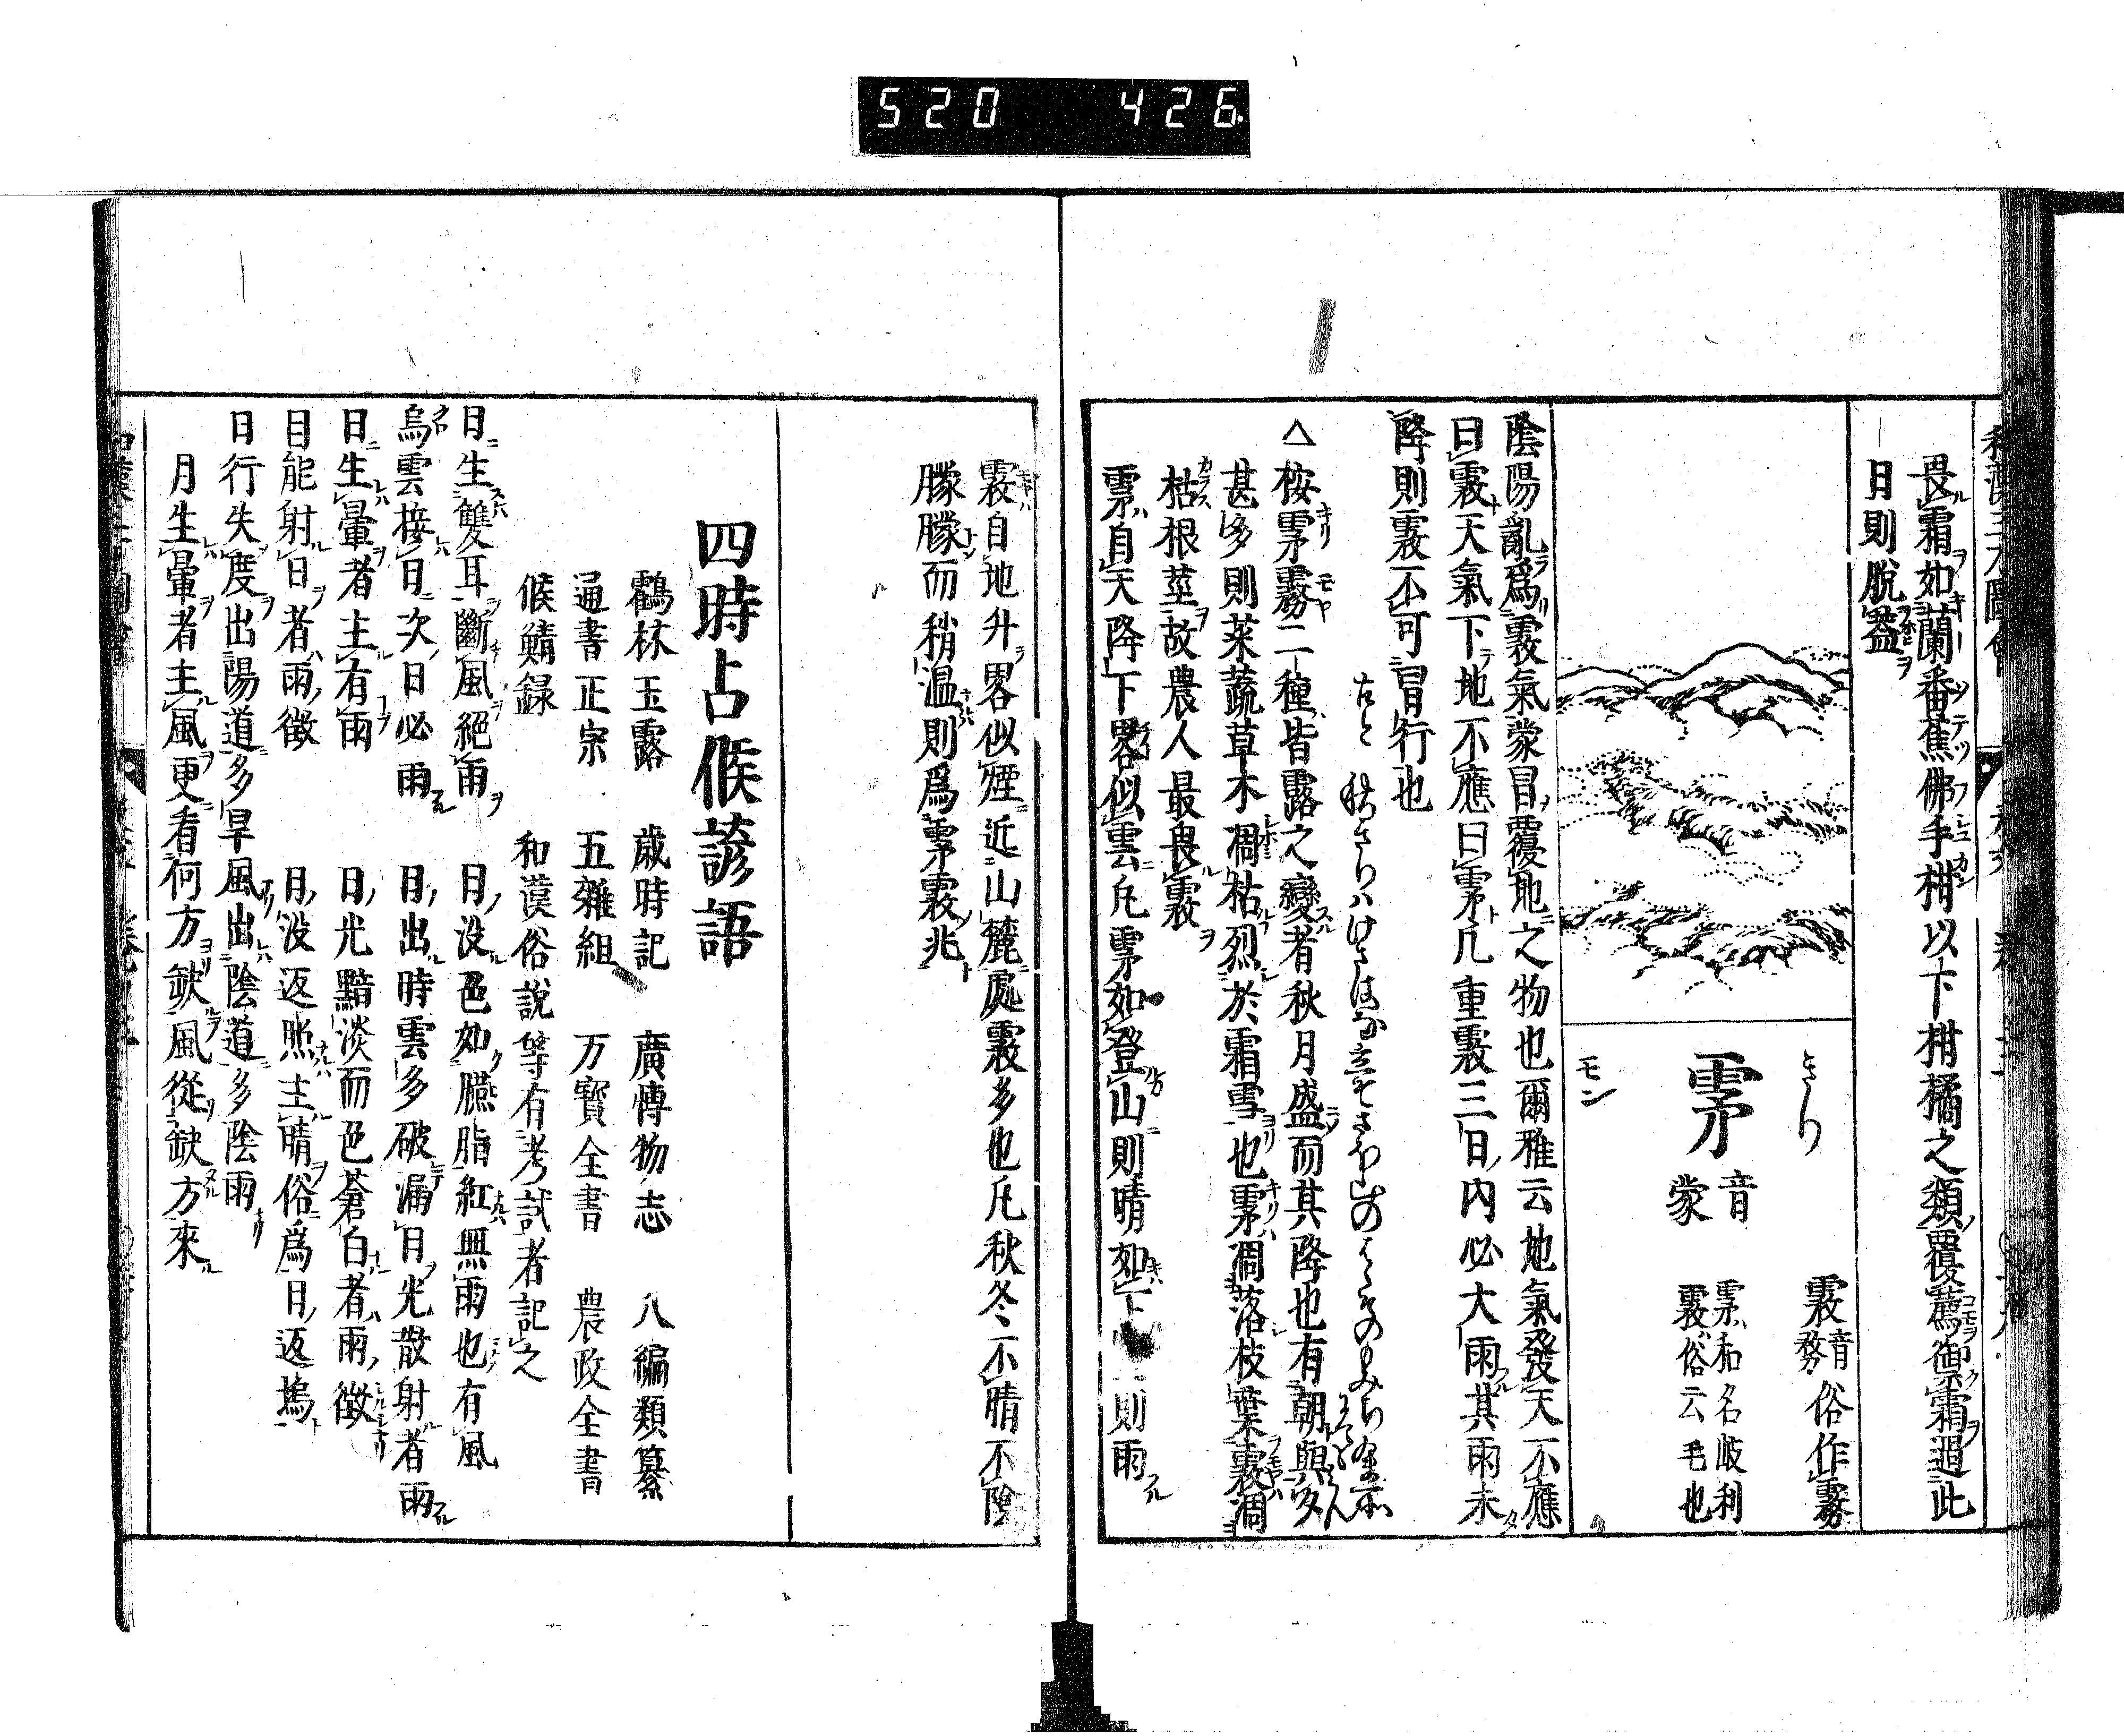 520 426
畏霜如蘭番蕉佛手柑以下柑橘之類覆薦御霜過此
月則脫蓋
きり
雺
音
蒙
モン
霚音務俗作霧
雺和名岐利
霚俗云毛也
陰陽亂爲霚氣蒙冒覆地之物也爾雅云地氣發天不應
曰霚天氣下地不應曰雺凡重霚三日內必大雨其雨未
降則霚不可冒行也
△按雺霧二種皆露之變者秋月盛而其降也有朝與夕
甚多則菜蔬草木凋枯烈於霜雪也雺凋落枝葉霚凋
枯根莖故農人最畏霚
雺自天降下畧似雲凡雺如登山則晴如下 則雨
霚自地升畧似煙近山麓處霚多也凡秋冬不晴不陰
朦朦而稍温則爲雺霚兆
四時占候諺語
鶴林玉露 歲時記 廣博物志 八編類纂
通書正宗 五雜組 万寳全書 農政全書
候鯖録 和漢俗說等有考試者記之
日生雙耳斷風絕雨 月没色如臙脂紅無雨也有風
烏雲接日次日必雨 月出時雲多破漏日光散射者雨
日生暈者主有雨 日光黯淡而色蒼白者雨徵
目能射日者雨徵 月没返照主晴俗爲日返塢
日行失度出陽道多旱風出陰道多陰雨
月生暈者主風更看何方缺風從缺方來